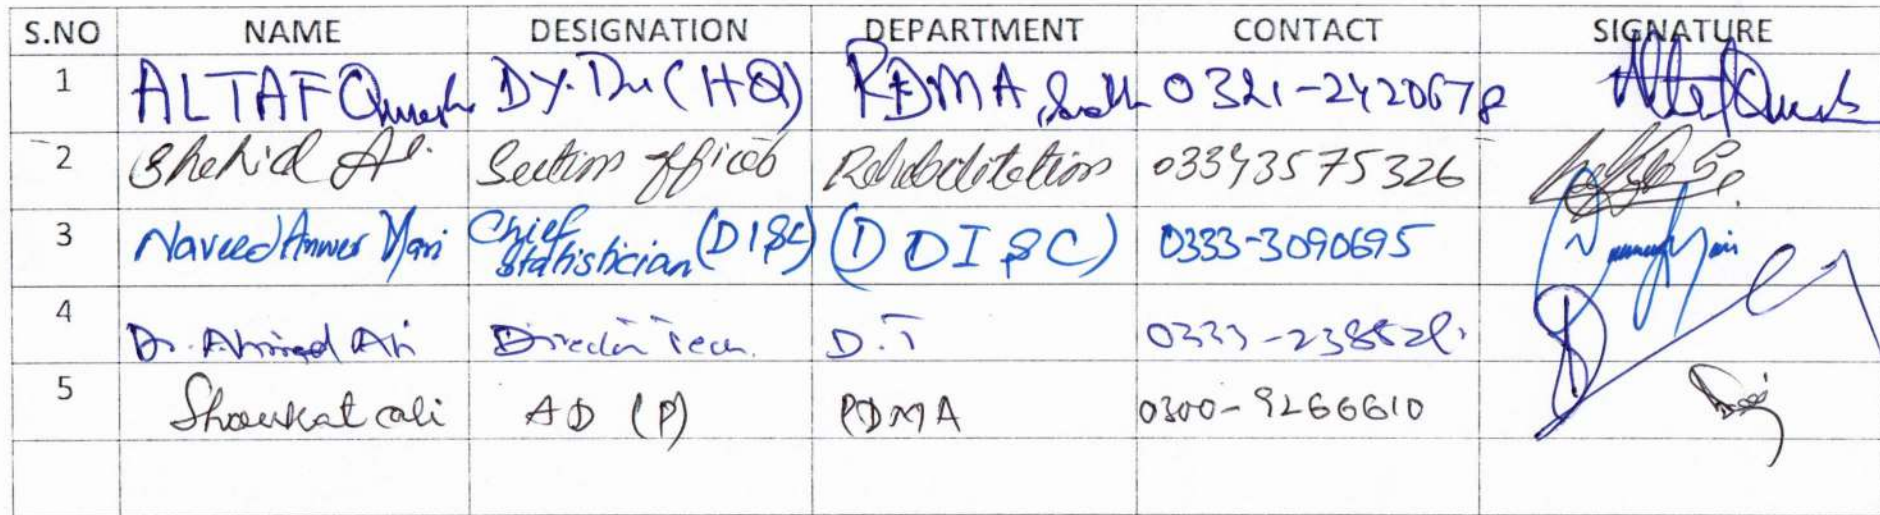 S.NO NAME DESIGNATION DEPARTMENT CONTACT SIGNATURE
1 ALTAF Qureshi DY. Dir (HQ) PDMA, Sindh 0321-2420678
2 Shahid Al. Section officer Rehabilitation 03343575326
3 Naveed Anwer Mari Chief Statistician (DI&C) (D DI &C) 0333-3090695
4 Dr. Ahmed Ali Director Tech. D.T
5 Shoukat ali AD (P) PDMA 0300-9266610